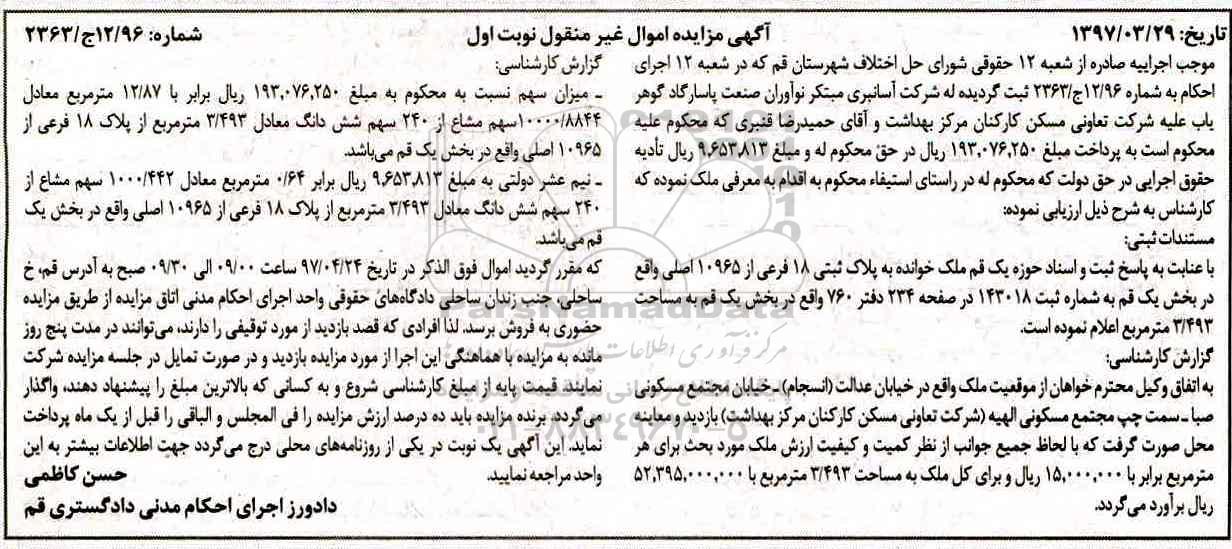 تاریخ: ۱۳۹۷/۰۳/۲۹
آگهی مزایده اموال غیر منقول نوبت اول
شماره: ۱۲/۹۶ج/۲۳۶۳
موجب اجراییه صادره از شعبه ۱۲ حقوقی شورای حل اختلاف شهرستان قم که در شعبه ۱۲ اجرای
احکام به شماره ۱۲/۹۶ج/۲۳۶۳ ثبت گردیده له شرکت آسانبری مبتکر نوآوران صنعت پاسارگاد گوهر
یاب علیه شرکت تعاونی مسکن کارکنان مرکز بهداشت و آقای حمیدرضا قنبری که محکوم علیه
محکوم است به پرداخت مبلغ ۱۹۳,۰۷۶,۲۵۰ ریال در حق محکوم له و مبلغ ۹,۶۵۳,۸۱۳ ریال تأدیه
حقوق اجرایی در حق دولت که محکوم له در راستای استیفاء محکوم به اقدام به معرفی ملک نموده که
کارشناس به شرح ذیل ارزیابی نموده:
مستندات ثبتی:
با عنایت به پاسخ ثبت و اسناد حوزه یک قم ملک خوانده به پلاک ثبتی ۱۸ فرعی از ۱۰۹۶۵ اصلی واقع
در بخش یک قم به شماره ثبت ۱۴۳۰۱۸ در صفحه ۲۳۴ دفتر ۷۶۰ واقع در بخش یک قم به مساحت
۳/۴۹۳ مترمربع اعلام نموده است.
گزارش کارشناسی:
به اتفاق وکیل محترم خواهان از موقعیت ملک واقع در خیابان عدالت (انسجام) ـ خیابان مجتمع مسکونی
صبا ـ سمت چپ مجتمع مسکونی الهیه (شرکت تعاونی مسکن کارکنان مرکز بهداشت) بازدید و معاینه
محل صورت گرفت که با لحاظ جمیع جوانب از نظر کمیت و کیفیت ارزش ملک مورد بحث برای هر
مترمربع برابر با ۱۵,۰۰۰,۰۰۰ ریال و برای کل ملک به مساحت ۳/۴۹۳ مترمربع با ۵۲,۳۹۵,۰۰۰,۰۰۰
ریال برآورد می‌گردد.
گزارش کارشناسی:
ـ میزان سهم نسبت به محکوم به مبلغ ۱۹۳,۰۷۶,۲۵۰ ریال برابر با ۱۲/۸۷ مترمربع معادل
۱۰۰۰۰/۸۸۴۴سهم مشاع از ۲۴۰ سهم شش دانگ معادل ۳/۴۹۳ مترمربع از پلاک ۱۸ فرعی از
۱۰۹۶۵ اصلی واقع در بخش یک قم می‌باشد.
ـ نیم عشر دولتی به مبلغ ۹,۶۵۳,۸۱۳ ریال برابر ۰/۶۴ مترمربع معادل ۱۰۰۰/۴۴۲ سهم مشاع از
۲۴۰ سهم شش دانگ معادل ۳/۴۹۳ مترمربع از پلاک ۱۸ فرعی از ۱۰۹۶۵ اصلی واقع در بخش یک
قم می‌باشد.
که مقرر گردید اموال فوق الذکر در تاریخ ۹۷/۰۴/۲۴ ساعت ۰۹/۰۰ الی ۰۹/۳۰ صبح به آدرس قم، خ
ساحلی، جنب زندان ساحلی دادگاه‌های حقوقی واحد اجرای احکام مدنی اتاق مزایده از طریق مزایده
حضوری به فروش برسد. لذا افرادی که قصد بازدید از مورد توقیفی را دارند، می‌توانند در مدت پنج روز
مانده به مزایده با هماهنگی این اجرا از مورد مزایده بازدید و در صورت تمایل در جلسه مزایده شرکت
نمایند. قیمت پایه از مبلغ کارشناسی شروع و به کسانی که بالاترین مبلغ را پیشنهاد دهند، واگذار
می‌گردد. برنده مزایده باید ده درصد ارزش مزایده را فی المجلس و الباقی را قبل از یک ماه پرداخت
نماید. این آگهی یک نوبت در یکی از روزنامه‌های محلی درج می‌گردد جهت اطلاعات بیشتر به این
واحد مراجعه نمایید.
حسن کاظمی
دادورز اجرای احکام مدنی دادگستری قم
ParsNamadData
مرکز فرآوری اطلاعات
۰۲۱-۸۸۳۴۹۶۷۰-۵